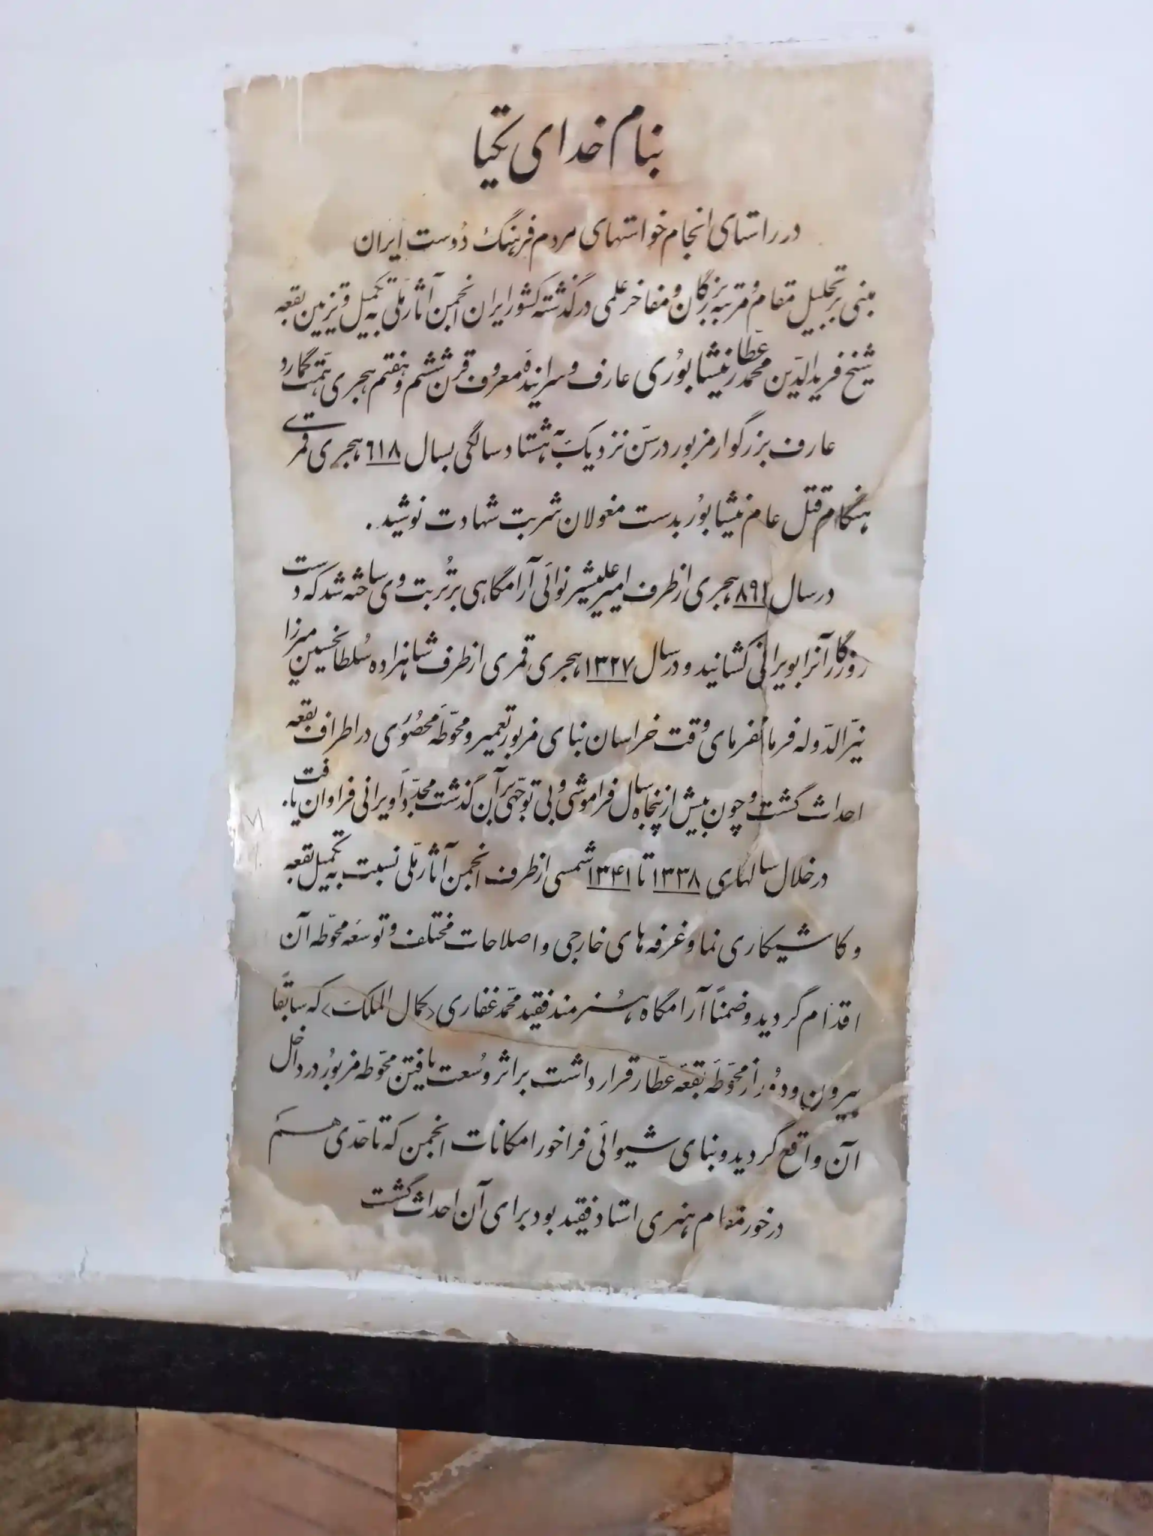 بنام خدای یکتا
در راستای انجام خواستهای مردم فرهنگ دوست ایران
مبنی بر تجلیل مقام و مرتبه بزرگان و مفاخر علمی در گذشته کشور ایران انجمن آثار ملّی به تکمیل و تزیین بقعه
شیخ فریدالدّین محمد عطّار نیشابوُری عارف و سراینده معروف قرن ششم و هفتم هجری همّت گمارد
عارف بزرگوار مزبور در سنّ نزدیک به هشتاد سالگی بسال ٦١٨ هجری قمری
هنگام قتل عام نیشابوُر بدست مغولان شربت شهادت نوشید.
در سال ٨٩١ هجری از طرف امیر علیشیر نوائی آرامگاهی بر تُربت وی ساخته شد که دست
روزگار آنرا بویرانی کشانید و در سال ١٣٢٧ هجری قمری از طرف شاهزاده سُلطانحسین میرزا
نیّرالدّوله فرمانفرمای وقت خراسان بنای مزبور تعمیر و محوّطه محصُوری در اطراف بقعه
احداث گشت و چون بیش از پنجاه سال فراموشی و بی توجّهی بر آن گذشت مجدّداً ویرانی فراوان یافت.
در خلال سالهای ١٣٣٨ تا ١٣۴١ شمسی از طرف انجمن آثار ملّی نسبت به تکمیل بقعه
و کاشیکاری نما و غرفه های خارجی و اصلاحات مختلف و توسعه محوّطه آن
اقدام گردید و ضمناً آرامگاه هُنرمند فقید محمّد غفاری <کمال الملک> که سابقاً
بیرون و دوُر از محوّطه بقعه عطّار قرار داشت بر اثر وُسعت یافتن محوّطه مزبوُر در داخل
آن واقع گردید و بنای شیوائی فراخور امکانات انجمن که تا حدّی هم
در خور مقام هنری استاد فقید بود برای آن احداث گشت